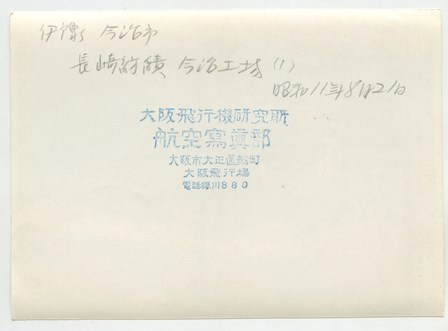 伊豫 今治市
長崎紡績 今治工場 (1)
昭和11年8月21日
大阪飛行機研究所
航空寫眞部
大阪市大正區船町
大阪飛行場
電話櫻川880